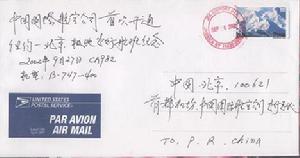 中国国际航空公司 首次开通
纽约—北京 极地直行航班纪念
2002年9月27日 CA982
机型: B-747-400
中国·北京. 100621
首都机场 中国国际航空公司
TO: P. R. CHINA
UNITED STATES
POSTAL SERVICE
PAR AVION
AIR MAIL